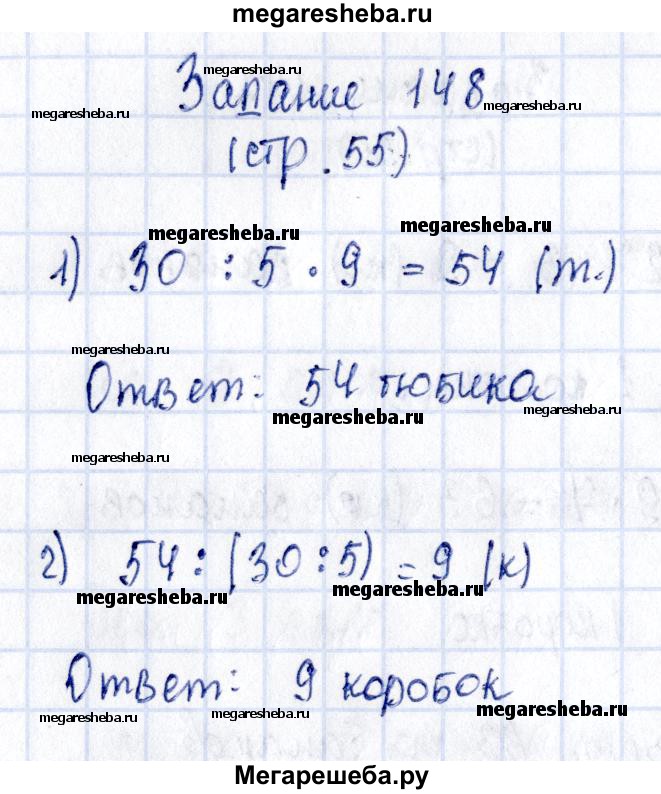 megaresheba.ru
megaresheba.ru
Задание 148
megaresheba.ru megaresheba.ru
(стр. 55)
megaresheba.ru megaresheba.ru
megaresheba.ru megaresheba.ru
1) 30 : 5 · 9 = 54 (т.)
megaresheba.ru
Ответ: 54 тюбика
megaresheba.ru megaresheba.ru
megaresheba.ru
2) 54 : (30 : 5) = 9 (к)
megaresheba.ru megaresheba.ru
Ответ: 9 коробок
megaresheba.ru megaresheba.ru megaresheba.ru
Мегарешеба.ру